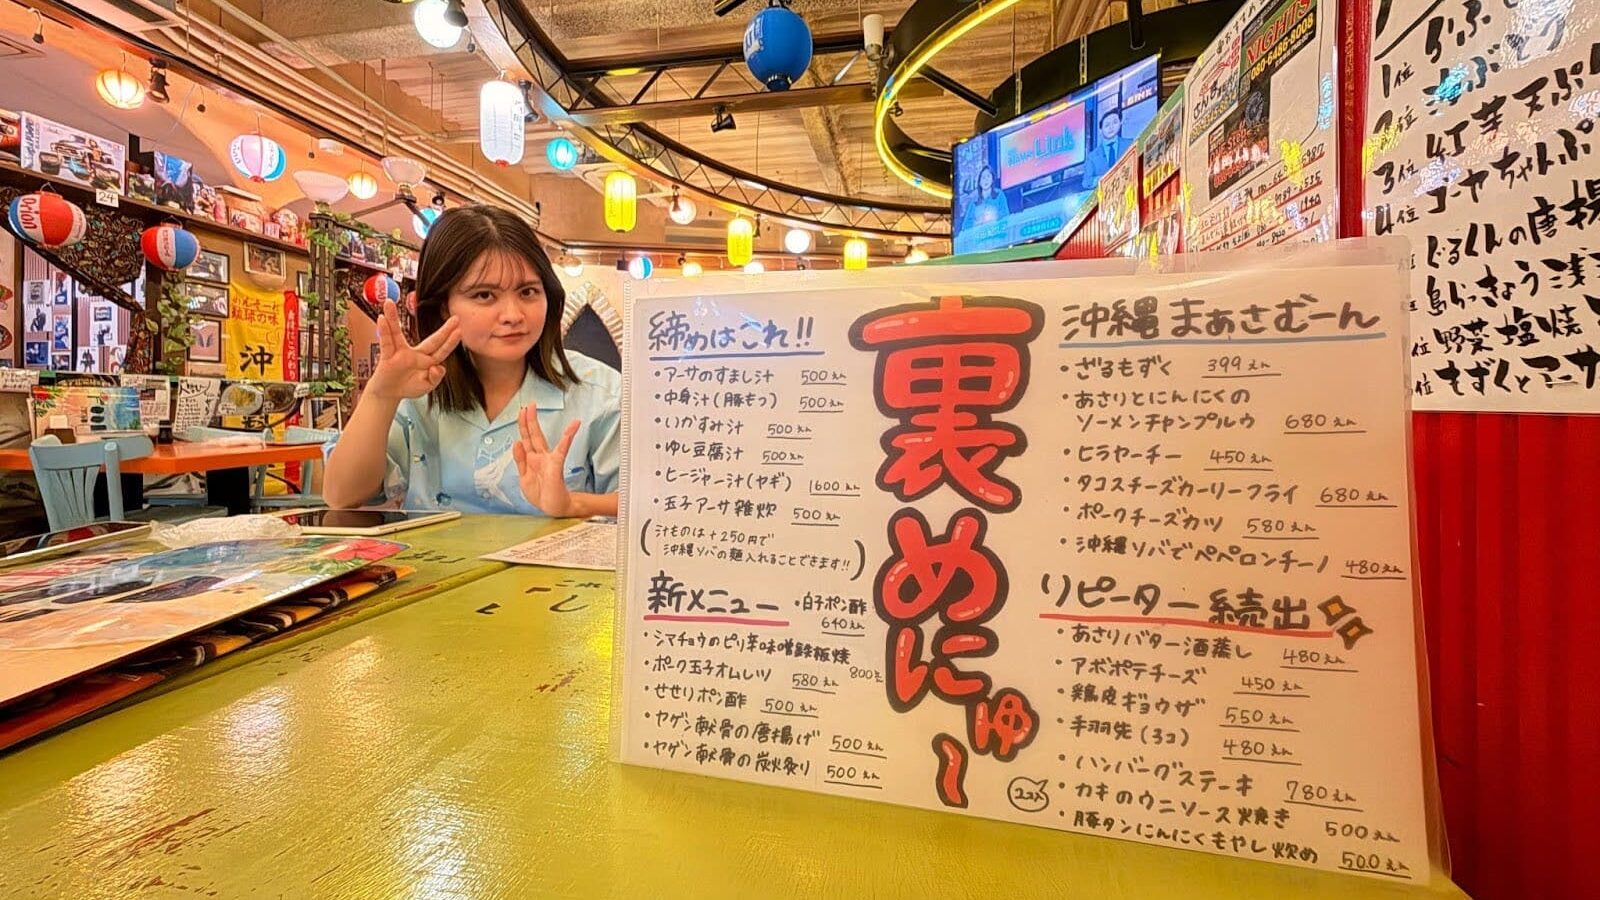 裏めにゅー
締めはこれ!!
・アーサのすまし汁 500えん
・中身汁(豚もつ) 500えん
・いかすみ汁 500えん
・ゆし豆腐汁 500えん
・ヒージャー汁(ヤギ) 1600えん
・玉子アーサ雑炊 500えん
(汁ものは+250円で
沖縄ソバの麺入れることできます!!)
新メニュー
・白子ポン酢
640えん
・シマチョウのピリ辛味噌鉄板焼
800えん
・ポーク玉子オムレツ 580えん
・せせりポン酢 500えん
・ヤゲン軟骨の唐揚げ 500えん
・ヤゲン軟骨の炭火炙り 500えん
沖縄まぁさむーん
・ざるもずく 399えん
・あさりとにんにくの
ソーメンチャンプルウ 680えん
・ヒラヤーチー 450えん
・タコスチーズカーリーフライ 680えん
・ポークチーズカツ 580えん
・沖縄ソバでペペロンチーノ 480えん
リピーター続出
・あさりバター酒蒸し 480えん
・アボポテチーズ 450えん
・鶏皮ギョウザ 550えん
・手羽先(3コ) 480えん
・ハンバーグステーキ 780えん
・カキのウニソース焼き 500えん
・豚タンにんにくもやし炒め 500えん
1位 海ぶどう
2位 紅芋天ぷ
3位 ゴーヤちゃんぷ
4位 ぐるくんの唐揚
島らっきょう浅
位 野菜塩焼
位 もずくとアーサ
NIGHTS
080-6486-8008
News Link
Orion
24
琉球の味
沖